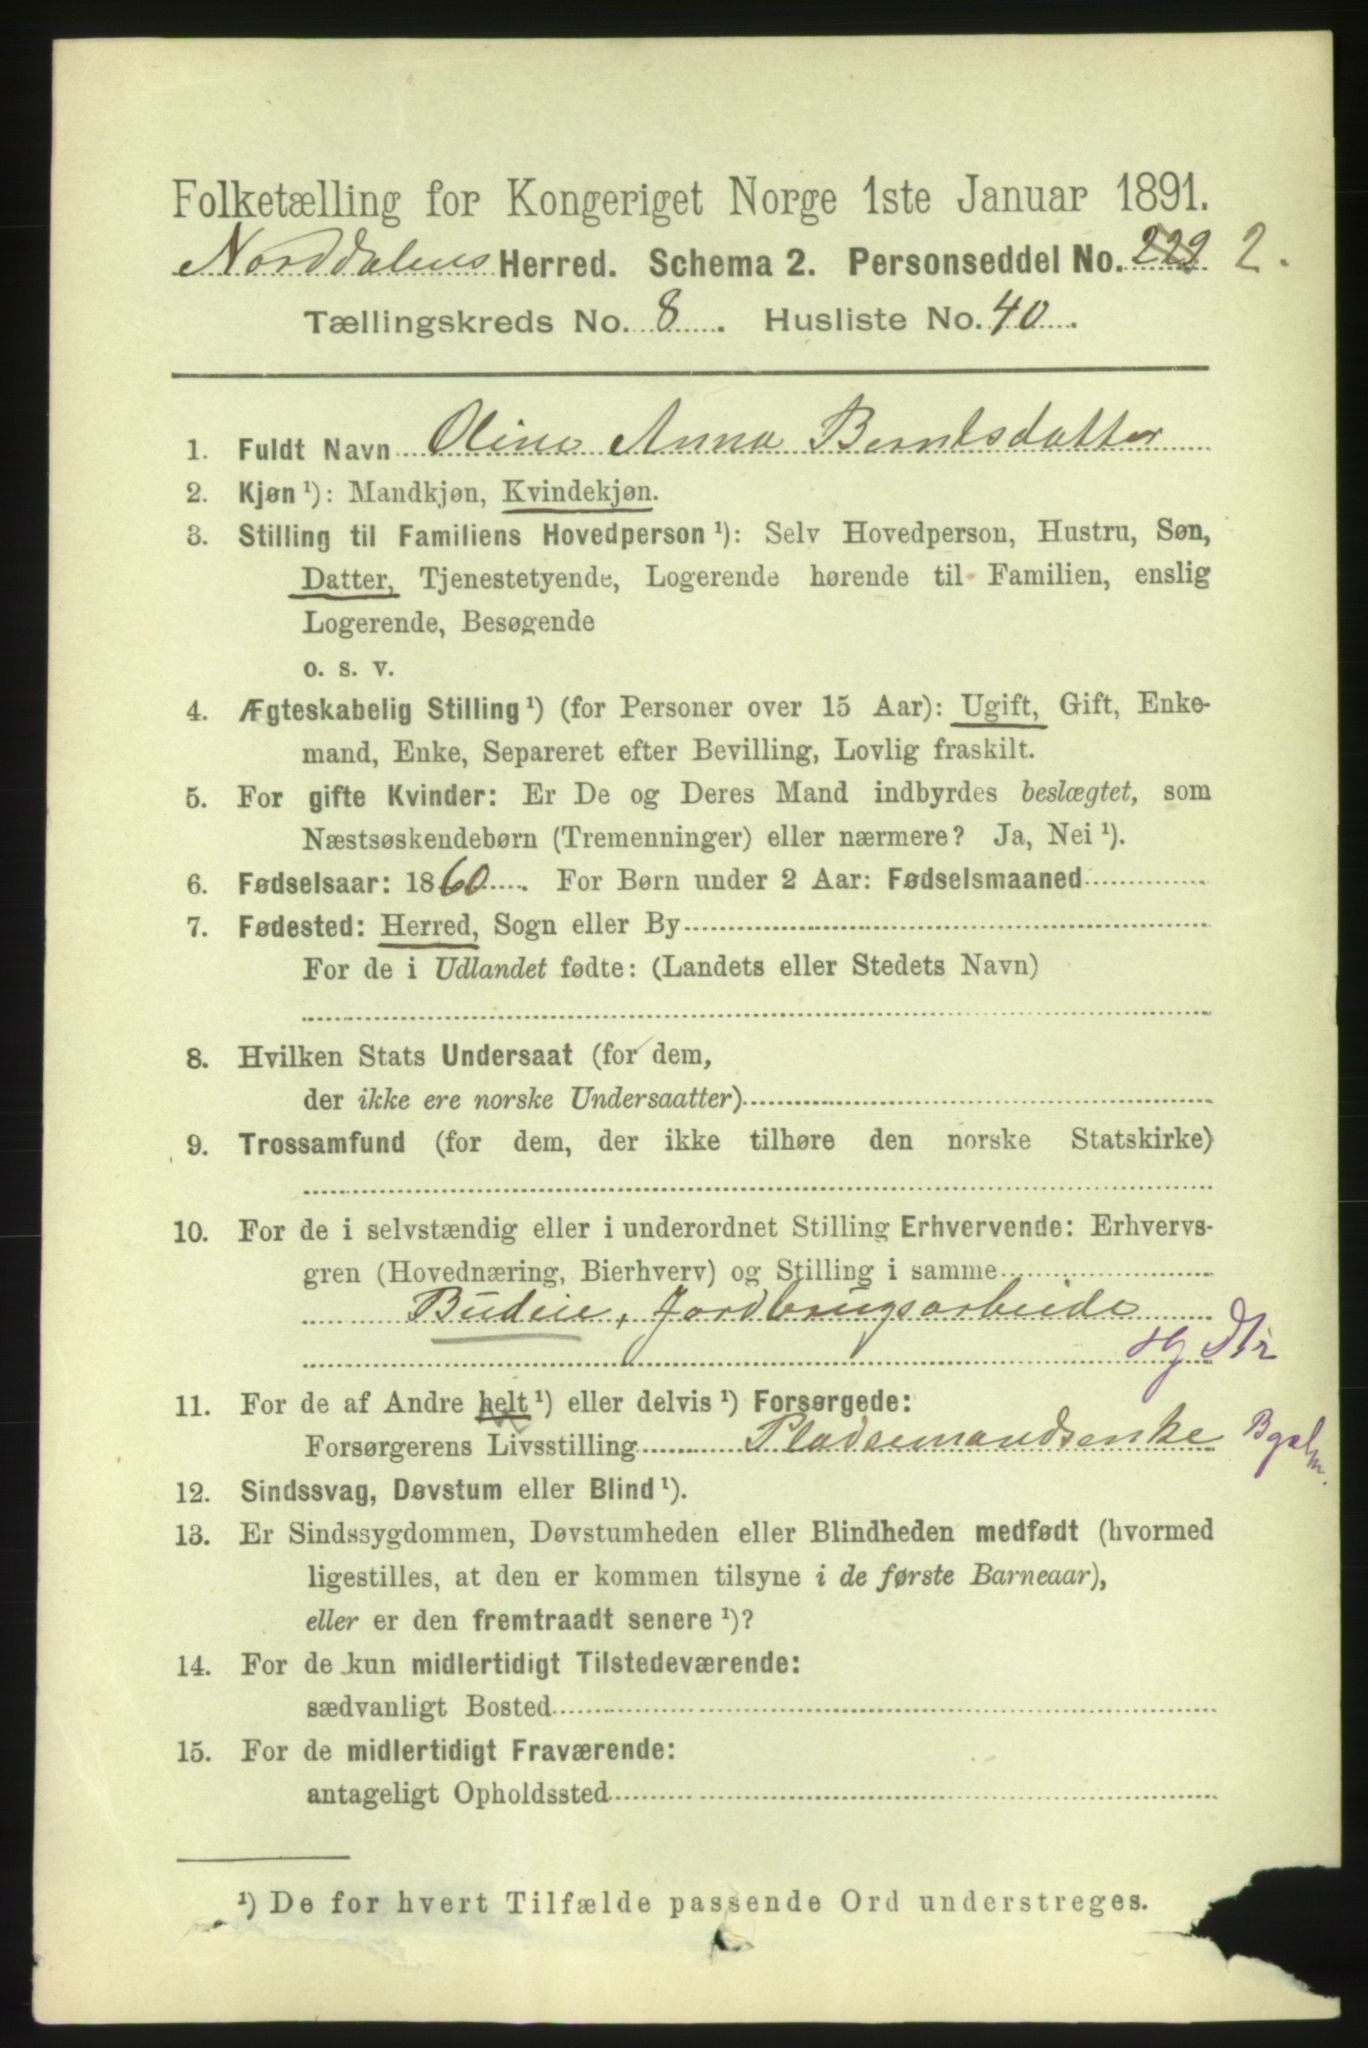 Folketælling for Kongeriget Norge 1ste Januar 1891.
Norddalens Herred. Schema 2. Personseddel No. 229 2.
Tællingskreds No. 8. Husliste No. 40.
1. Fuldt Navn Oline Anna Berntsdatter
2. Kjøn ¹): Mandkjøn, Kvindekjøn.
3. Stilling til Familiens Hovedperson ¹): Selv Hovedperson, Hustru, Søn,
Datter, Tjenestetyende, Logerende hørende til Familien, enslig
Logerende, Besøgende
o. s. v.
4. Ægteskabelig Stilling ¹) (for Personer over 15 Aar): Ugift, Gift, Enke-
mand, Enke, Separeret efter Bevilling, Lovlig fraskilt.
5. For gifte Kvinder: Er De og Deres Mand indbyrdes beslægtet, som
Næstsøskendebørn (Tremenninger) eller nærmere? Ja, Nei ¹).
6. Fødselsaar: 1860. For Børn under 2 Aar: Fødselsmaaned
7. Fødested: Herred, Sogn eller By
For de i Udlandet fødte: (Landets eller Stedets Navn)
8. Hvilken Stats Undersaat (for dem,
der ikke ere norske Undersaatter)
9. Trossamfund (for dem, der ikke tilhøre den norske Statskirke)
10. For de i selvstændig eller i underordnet Stilling Erhvervende: Erhvervs-
gren (Hovednæring, Bierhverv) og Stilling i samme
Budeie, Jordbrugsarbeide
11. For de af Andre helt ¹) eller delvis ¹) Forsørgede:
Forsørgerens Livsstilling Pladsemandsenke
12. Sindssvag, Døvstum eller Blind ¹).
13. Er Sindssygdommen, Døvstumheden eller Blindheden medfødt (hvormed
ligestilles, at den er kommen tilsyne i de første Barneaar),
eller er den fremtraadt senere ¹)?
14. For de kun midlertidigt Tilstedeværende:
sædvanligt Bosted
15. For de midlertidigt Fraværende:
antageligt Opholdssted
¹) De for hvert Tilfælde passende Ord understreges.